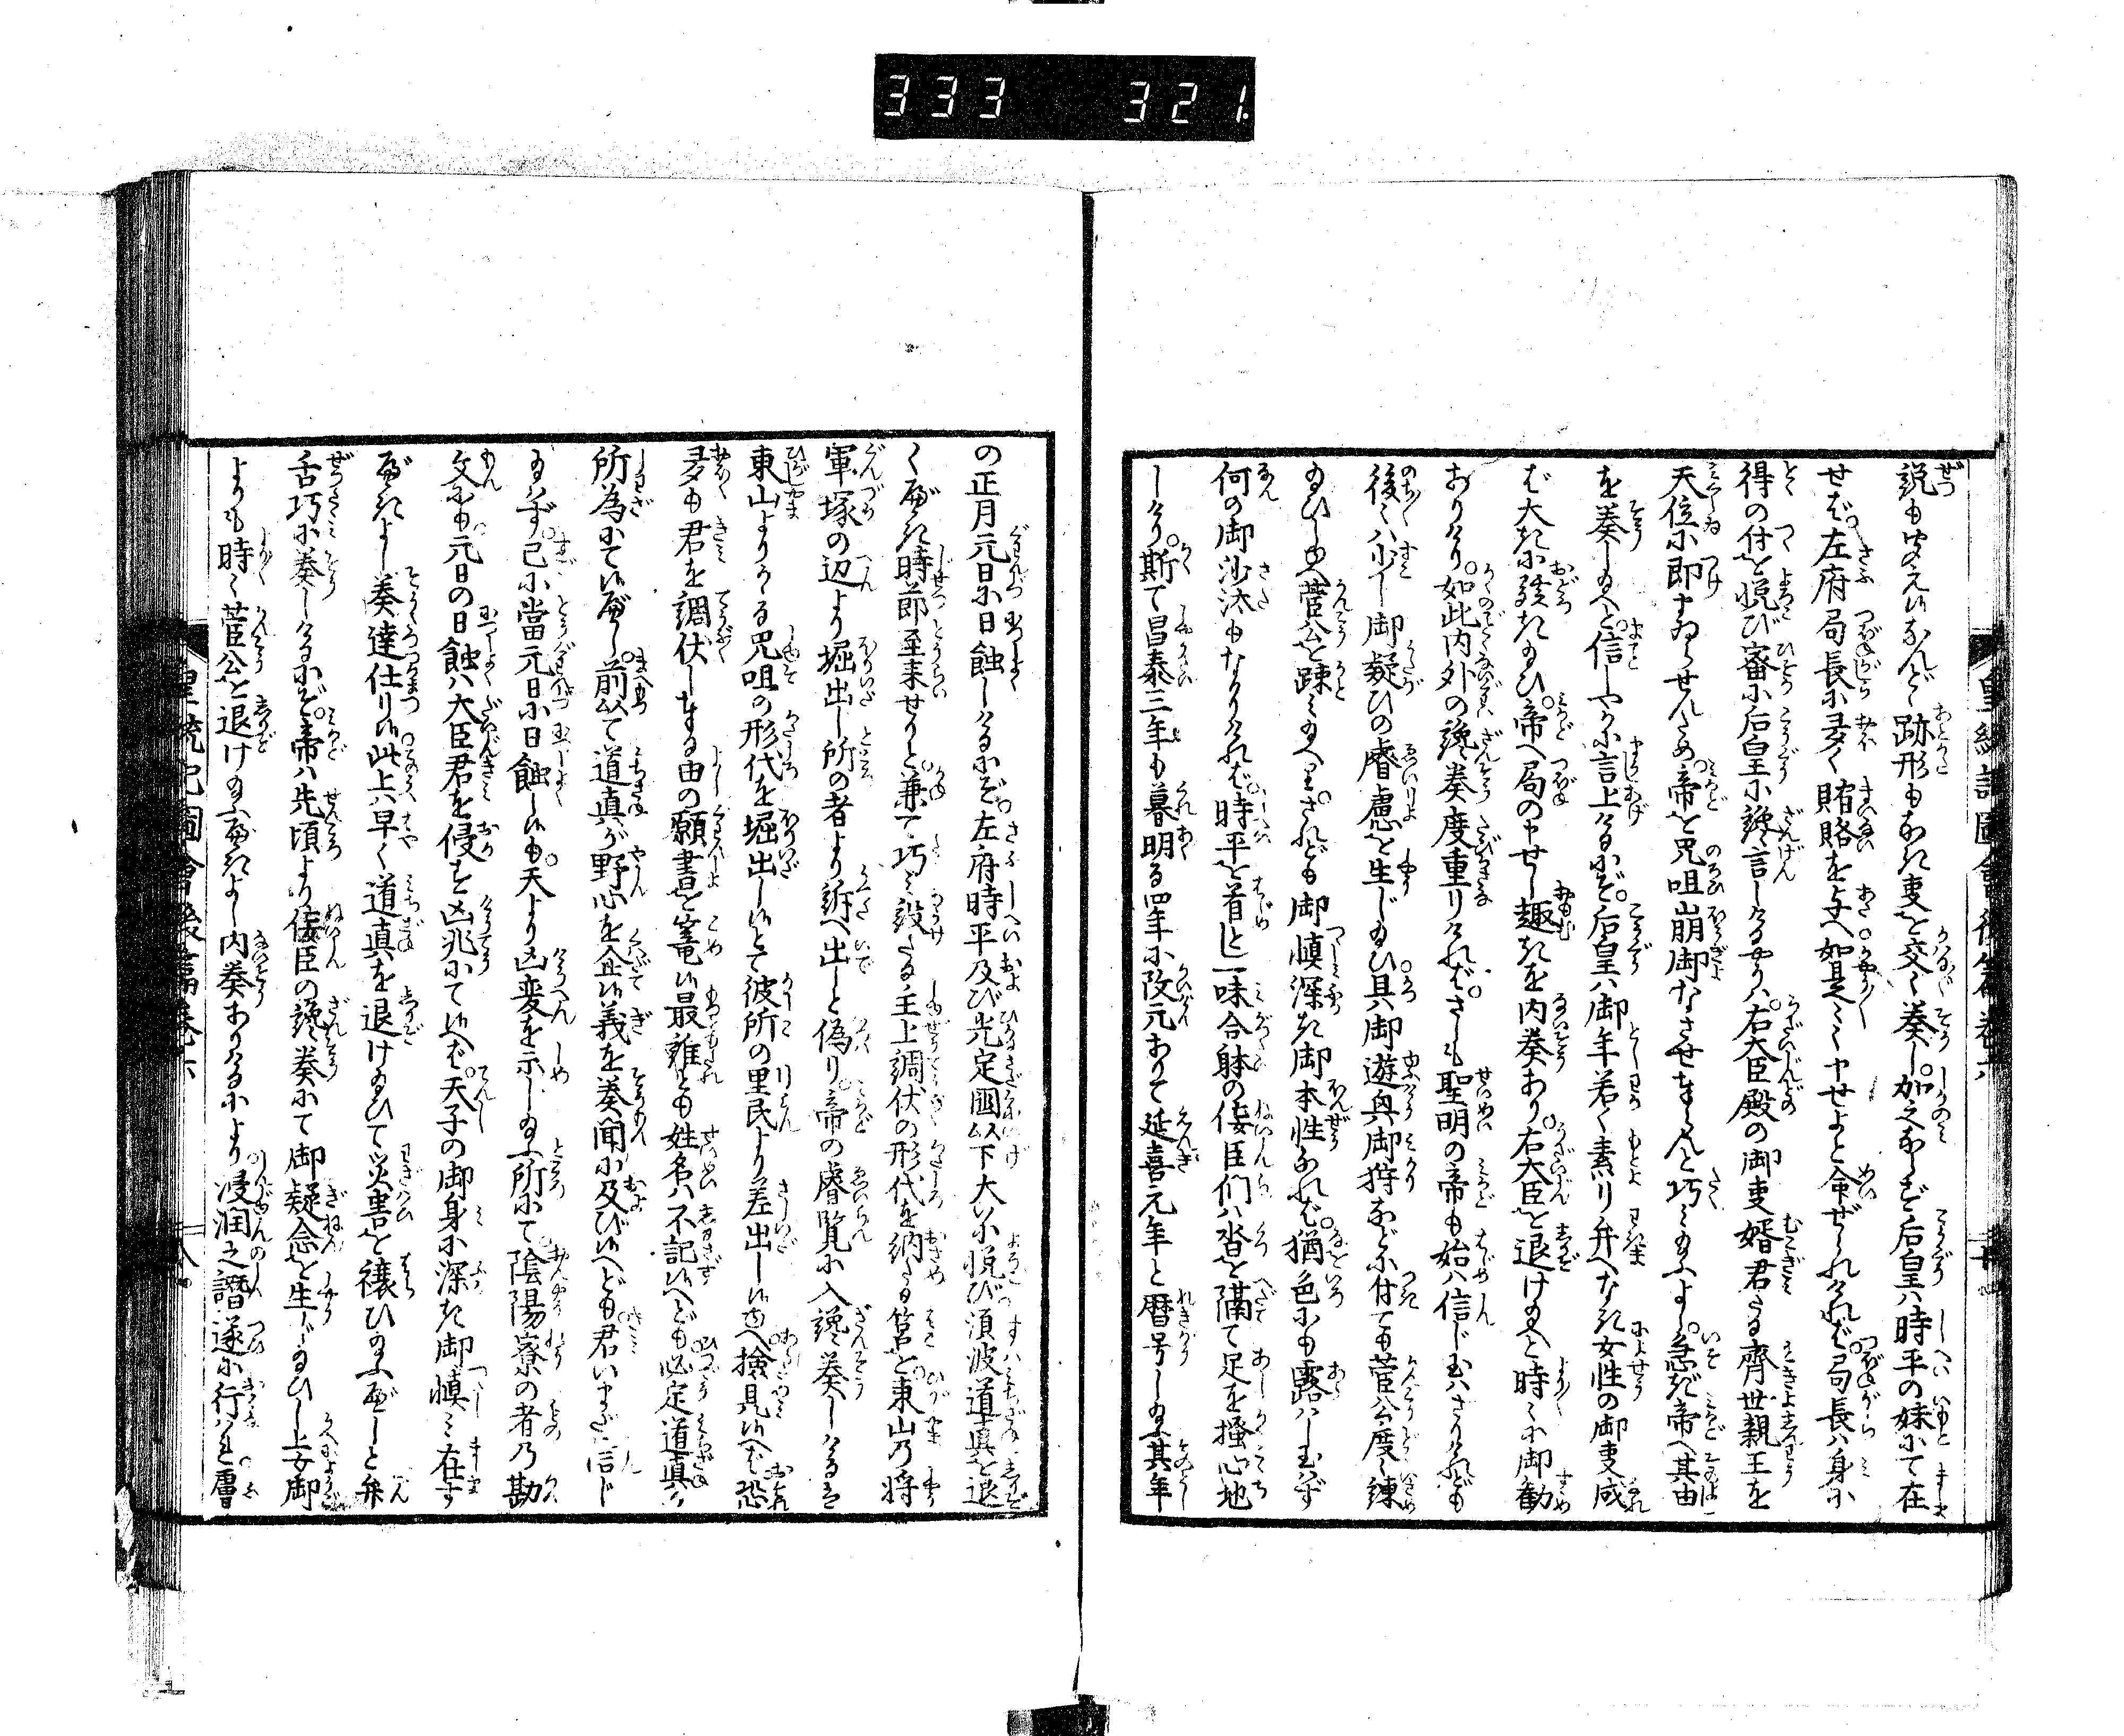 333 321.
説も聞え候なんど跡形もなき事を交へ奏し。加之ならず后皇ハ時平の妹にて在
せバ。左府局長に多く賂賂を与へ如是々々申せよと命ぜられけれバ。局長ハ身に
得の付を悦び審に后皇に讒言しけるやう。右大臣殿の御事婿君たる齊世親王を
天位に即まゐらせんため。帝を咒咀崩御なさせ奉らんと巧ミ給ふよし。急ぎ帝へ其由
を奏し給へと。信しやかに言上けるにぞ。后皇ハ御年若く素り弁へなき女性の御事成
バ大きに駭き給ひ。帝へ局の申せし趣きを内奏あり。右大臣を退け給へと時々に御勧
ありけり。如此内外の讒奏度重りけれバ。さしも聖明の帝も始ハ信じ玉ハざりけれども
後々ハ少し御疑ひの睿慮を生じ給ひ。具御遊興御狩などに付ても菅公度々練
給ひしゆへ菅公を踈ミ給へり。されども御慎深き御本性なれバ。猶色にも露ハし玉ハず
何の御沙汰もなかりけれバ。時平を首として一味合躰の佞臣們ハ沓を隔て足を掻心地
しけり。斯て昌泰三年も暮明る四年に改元ありて延喜元年と暦号し給ふ其年
の正月元日に日蝕しけるにぞ。左府時平及び光定國以下大いに悦び須波道真を退
く べき時節至来せりと。兼て巧ミ設たる主上調伏の形代を納たる筥を。東山の将
軍塚の辺より堀出し所の者より訴へ出しと偽り。帝の睿覧に入讒奏しけるは
東山よりかゝる咒咀の形代を堀出し候とて彼所の里民より差出し候ゆへ。撿見候へバ恐
多も君を調伏し奉る由の願書を篭候最誰とも姓名ハ不記候へども。必定道真が
所為にて候べし。前以て道真が野心を企候義を奏聞に及び候へども。君いまだ信じ
給ハず。已に當元日に日蝕し候も。天より凶変を示し給ふ所にて。陰陽寮の者乃勘
文にも。元日の日蝕ハ大臣君を侵す凶兆にて候へバ。天子の御身に深き御慎ミ在す
べきよし奏達仕り候。此上ハ早く道真を退け給ひて災害を禳ひ給ふべしと弁
舌巧に奏しけるにぞ。帝ハ先頃より佞臣の讒奏にて御疑念を生じ給ひし上女御
よりも時々菅公を退け給ふべきよし内奏ありけるにより浸潤之譖遂に行ハれ膚